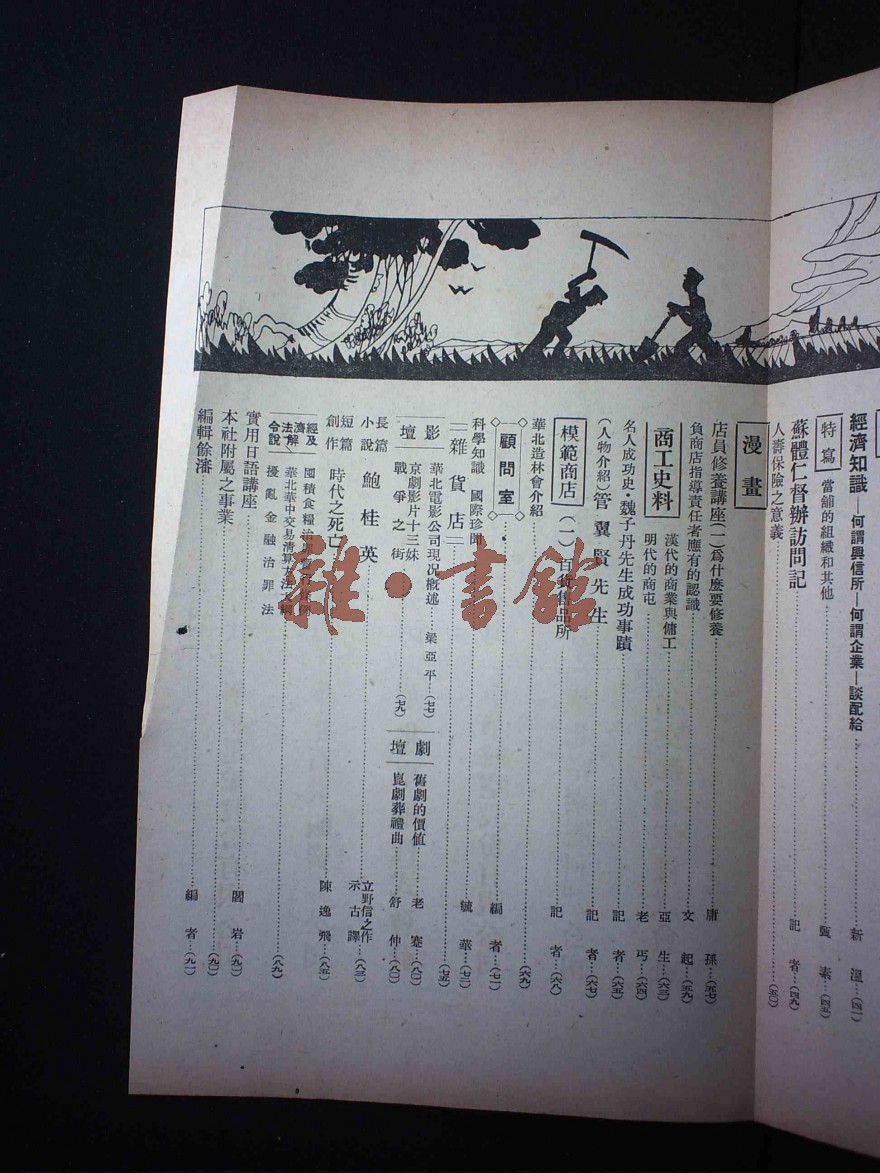 經濟知識—何謂興信所—何謂企業—談配給 新湼…(四一)
特寫 當舖的組織和其他 甄素…(四五)
蘇體仁督辦訪問記 記者…(四九)
人壽保險之意義 (五〇)
漫畫
店員修養講座(一)爲什麼要修養 庸孫…(五七)
負商店指導責任者應有的認識 文起…(五九)
商工史料 漢代的商業與傭工 亞生…(六三)
明代的商屯 老丐…(六四)
名人成功史·魏子丹先生成功事蹟 記者…(六五)
(人物介紹)管翼賢先生 記者…(六七)
模範商店 (一)百貨售品所 記者…(六八)
華北造林會介紹 (六九)
顧問室 編者…(七一)
科學知識 國際珍聞 毓華…(七二)
雜貨店 (七五)
影壇 華北電影公司現况概述…梁亞平…(七七)
京劇影片十三妹
戰爭之街 (七九)
劇壇 舊劇的價值 老蹇…(八一)
崑劇葬禮曲 舒仲…(八二)
長篇小說 鮑桂英 立野信之作 示古譯…(八三)
短篇創作 時代之死亡 陳逸飛…(八五)
經濟法令及解說 囤積食糧治罪
華北華中交易清算方法大綱
擾亂金融治罪法 (八九)
實用日語講座 閻岩…(九一)
本社附屬之事業
編輯餘瀋 編者…(九一)
雜·書館